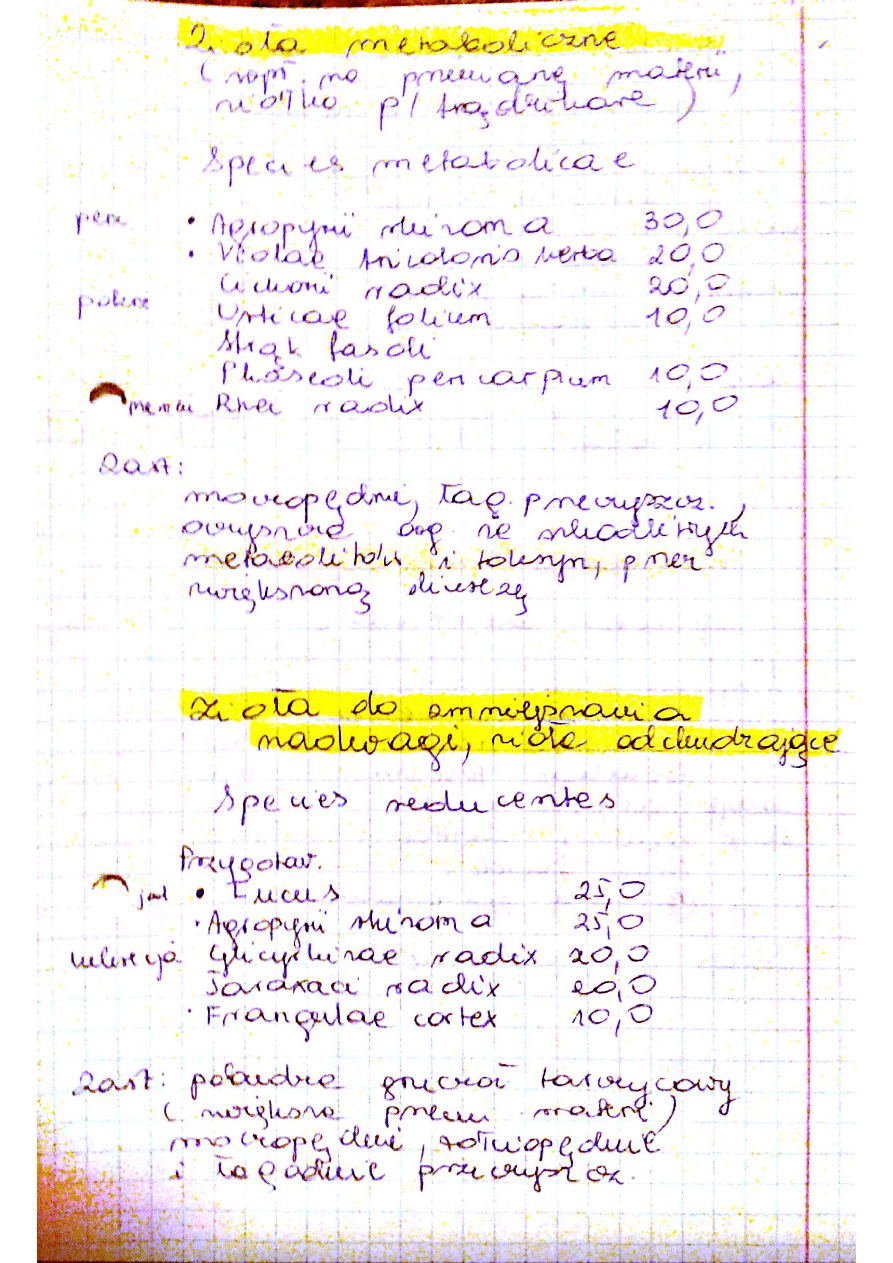 Zioła metaboliczne
(wpł. na przemianę materii,
ziółka p/trądzikowe)
Species metabolicae
perz • Agropyri rhizoma 30,0
• Violae tricoloris herba 20,0
Cichorii radix 20,0
Urticae folium 10,0
Strąk fasoli
Phaseoli pericarpium 10,0
Rhei radix 10,0
Zast:
moczopędnie, łag. przeczyszcz.,
oczyszcza org. ze szkodliwych
metabolitów i toksyn, przez
zwiększoną diurezę
Zioła do zmniejszania
nadwagi, zioła odchudzające
Species reducentes
Przygotow.
jod • Fucus 25,0
• Agropyri rhizoma 25,0
Glicyrhizae radix 20,0
Taraxaci radix 20,0
• Frangulae cortex 10,0
Zast: pobudza gruczoł tarczycowy
(zwiększa przem materii)
moczopędnie, żółciopędnie
i łagodnie przeczyszcz.